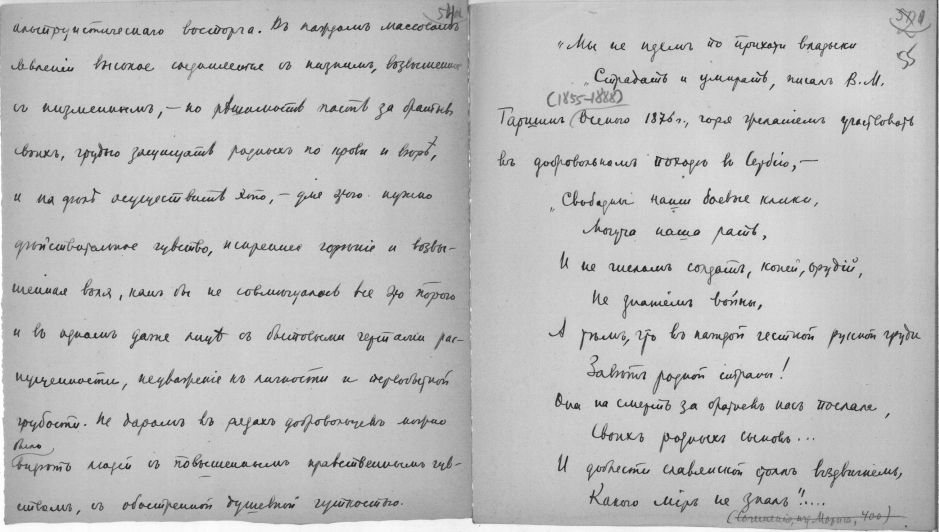 альтруистическаго восторга. Въ каждомъ массовомъ
явленіи высокое соединяется съ низкимъ, возвышенное
съ низменнымъ, — но рѣшимость пасть за братьевъ
своихъ, грудью защищать родныхъ по крови и вѣрѣ,
и на дѣлѣ осуществить это, — для этого нужно
дѣйствительное чувство, искреннее горѣніе и возвы-
шенная воля, какъ бы не совмѣщалось все это порою
и въ одномъ даже лицѣ съ бытовыми чертами рас-
пущенности, неуваженія къ личности и первобытной
грубости. Не даромъ въ рядахъ добровольцевъ можно
было
видѣть людей съ повышеннымъ нравственнымъ чув-
ствомъ, съ обостренной душевной чуткостью.
55
„Мы не идемъ по прихоти владыки
„Страдать и умирать, писалъ В. М.
(1855–1888)
Гаршинъ (весною 1876 г., горя желаніемъ участвовать
въ добровольномъ походѣ въ Сербію, —
„Свободны наши боевые клики,
Могуча наша рать,
И не числомъ солдатъ, коней, орудій,
Не знаніемъ войны,
А тѣмъ, что въ каждой честной русской груди
Завѣтъ родной страны!
Она на смерть за братьевъ насъ послала,
Своихъ родныхъ сыновъ...
И доблести славянской столпъ воздвигнемъ,
Какого міръ не зналъ"!....
(Сочиненія, изд. Маркса, 400)